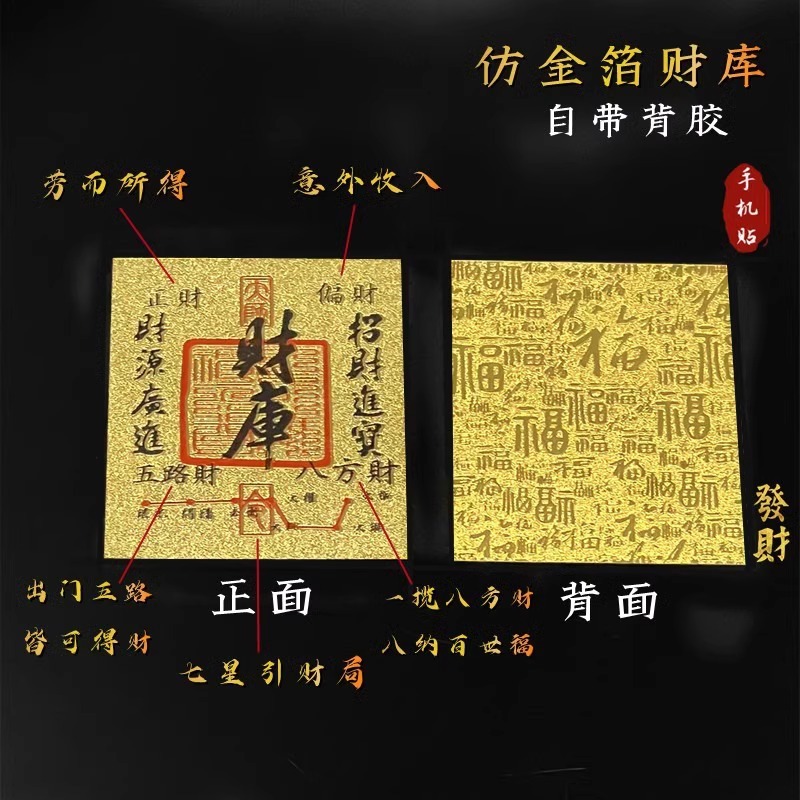 仿金箔财库
自带背胶
手机贴
劳而所得
意外收入
正財
偏財
財源廣進
財庫
招財進寳
五路財
八方財
發財
正面
背面
出门五路
皆可得财
一揽八方财
八纳百世福
七星引财局
福